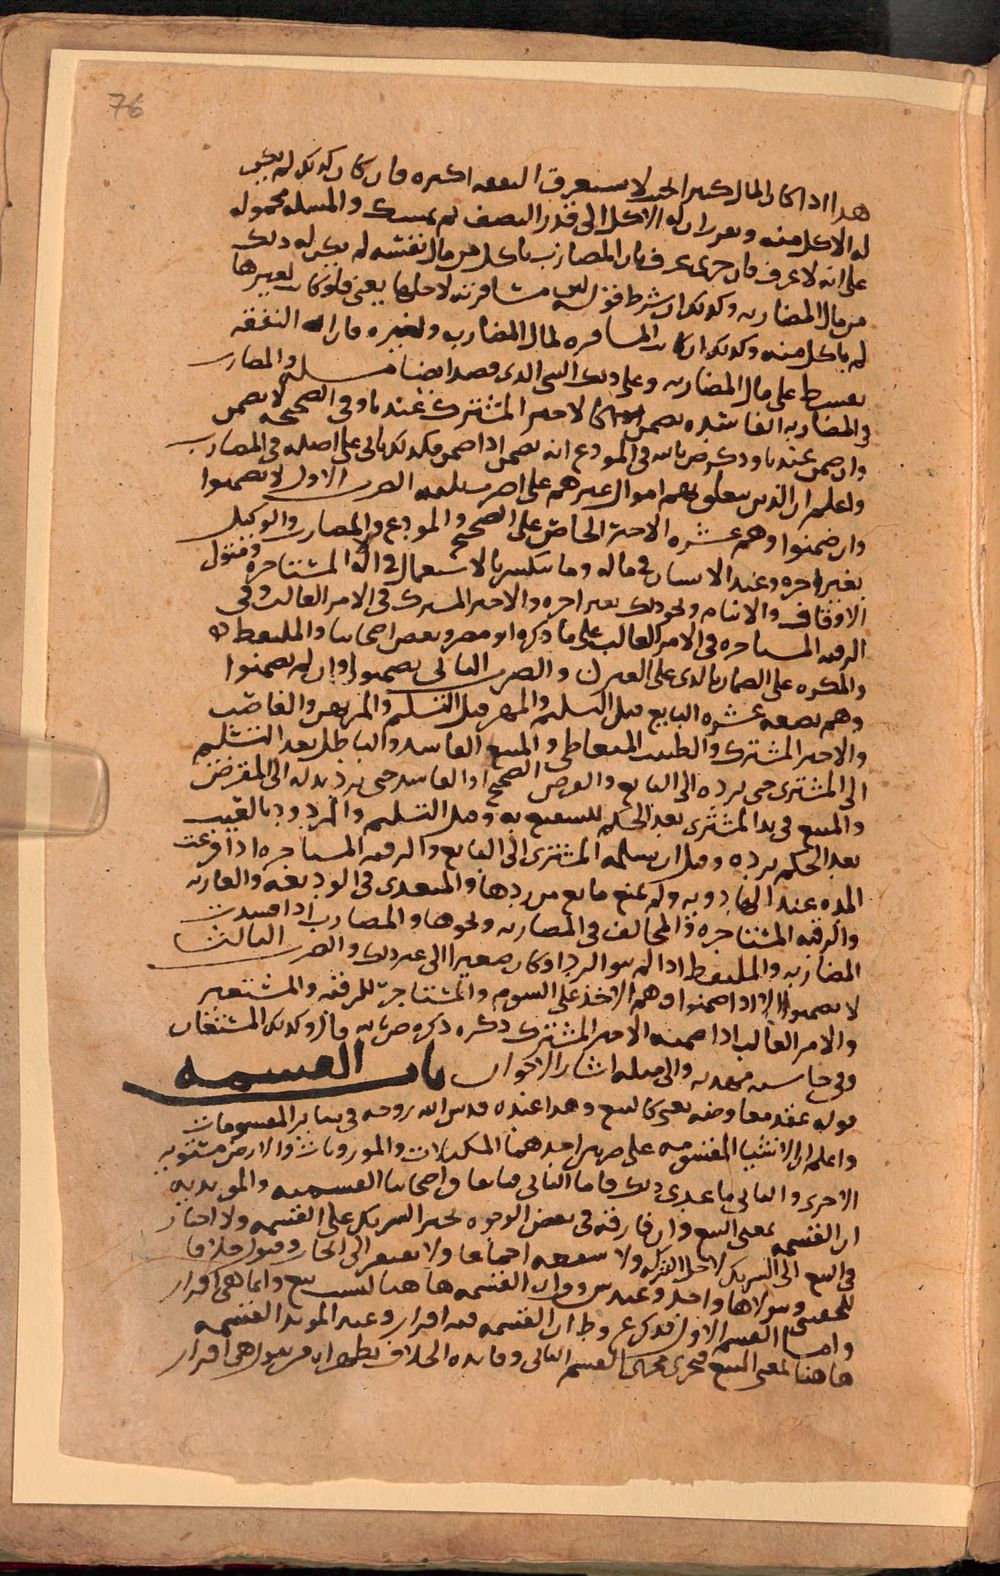 76
هذا اذا كان المال كثيرا بحيث لا يستغرق النفقه اكثره فان كان كذلك لم يكن
له الاكل منه و ان له الاكل الى قدر النصف ثم يمسك والمسله محموله
على انه لا عرف فان جرى عرف بان المضارب ياكل من مال نفسه لم يكن له ذلك
من مال المضاربه وكذلك ان شرط لاجلها يعني فلو كان لغيرها
لم ياكل منه وكذلك ان كان المسافره لمال المضارب ولغيره فان النفقه
يقسط على مال المضاربه وعلى ذلك الشي الذي قصد ايضا مسله والمضارب
في المضاربه الفاسده يضمن كالاجير المشترك عندنا وفي الصحيحه لا يضمن
وان ضمن عندنا وذكر ض بالله في المودع انه يضمن اذا ضمن فكذلك ياتي على اصله في المضارب
واعلم ان الذين يتعلق بهم اموال غيرهم على اضرب ثلثه الضرب الاول لا يضمنوا
وان ضمنوا وهم عشره الاجير الخاص على الصحيح والمودع والمضارب والوكيل
بغير اجره وعند الانسان في ماله وما ينكسر بالاستعمال في الاله المستاجره ومتولي
الاوقاف والايتام ونحو ذلك بغير اجره والاجير المشترك في الامر الغالب وفي
الرقبه المستاجره في الامر الغالب على ما ذكره ابو مضر وبعض اصحابنا والملتقط
والمكره على الضمان والضرب الثاني يضمنوا وان لم يضمنوا
وهم بضعه عشره البايع قبل التسليم والمهر قبل التسليم والمرتهن والغاصب
والاجير المشترك والطبيب المتعاطي والمبيع الفاسد والباطل بعد التسليم
الى المشتري حتى يرده الى البايع والقرض الصحيح او الفاسد حتى يرد بدله الى المقرض
والمبيع في يد المشتري بعد الحكم للشفيع به وقبل التسليم والمردود بالعيب
بعد الحكم برده وقبل ان يسلمه المشتري الى البايع والرقبه المستاجره اذا فرغت
المده عند الهادويه ولم يمنع مانع من ردها والمتعدي في الوديعه والعاريه
والرقبه المستاجره والمخالف في المضاربه ونحوها والمضارب اذا فسدت
المضاربه والملتقط اذا لم ينو الرد او كان صغيرا الى غير ذلك والضرب الثالث
لا يضمنوا الا اذا ضمنوا وهم الاخذ على السوم والمستاجر للرقبه والمستعير
والامر الغالب اذا ضمنه الاجير المشترك ذكره ض بالله قال وكذلك المستعار
وفي والى مثله اشار الاخوان باب القسمه
قوله عقد معاوضه يعني كالبيع وهذا عنده قدس الله روحه في ساير المقسومات
واعلم ان الاشيا المقسومه على ضربين احدهما المكيلات والموزونات والارض مستويه
الاجزى والثاني ما عدى ذلك فاما الثاني اصحابنا القسميه والمويديه
ان القسمه بمعنى البيع وان فارقته في بعض الوجوه يجبر الشريك على القسمه ولا اجبار
في البيع الى الشريك لاجل الشركه ولا شفعه اجماعا ولا يفتقر الى ايجاب وقبول خلافا
للحقيني وتولاها واحد وعند س و ان القسمه هاهنا ليست ببيع وانما هي افراز
واما القسم الاول فذكر ع و ط ان القسمه فيه افراز وعند المويد القسمه
هاهنا بمعنى البيع فجرى مجرى القسم الثاني وفايده الخلاف يظهر ان من يقول هي افراز